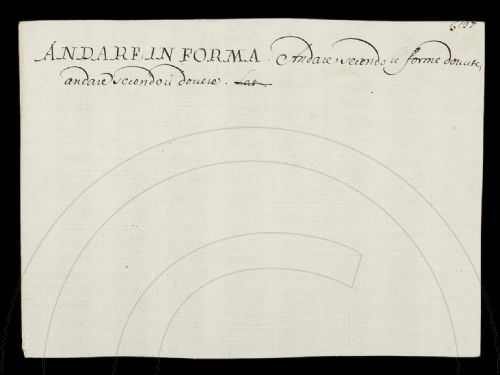 ANDARE IN FORMA. Andare secondo le forme dovute,
andare secondo il dovere. Lat